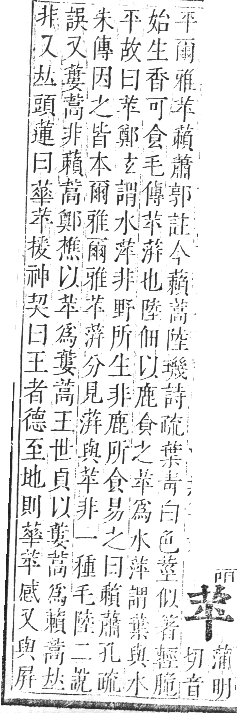 苹
蒲明切音
平爾雅苹藾蕭郭註今藾蒿陸璣詩疏葉青白色莖似箸輕脆
始生香可食毛傳苹蓱也陸佃以鹿食之苹為水萍謂葉與水
平故曰苹鄭玄謂水萍非野所生非鹿所食易之曰藾蕭孔疏
朱傳因之皆本爾雅爾雅苹蓱分見蓱與苹非一種毛陸二說
誤又蔞蒿非藾蒿鄭樵以苹為蔞蒿王世貞以蔞蒿為藾蒿𠀤
非又𠀤頭蓮曰華苹援神契曰王者德至地則華苹感又與屏